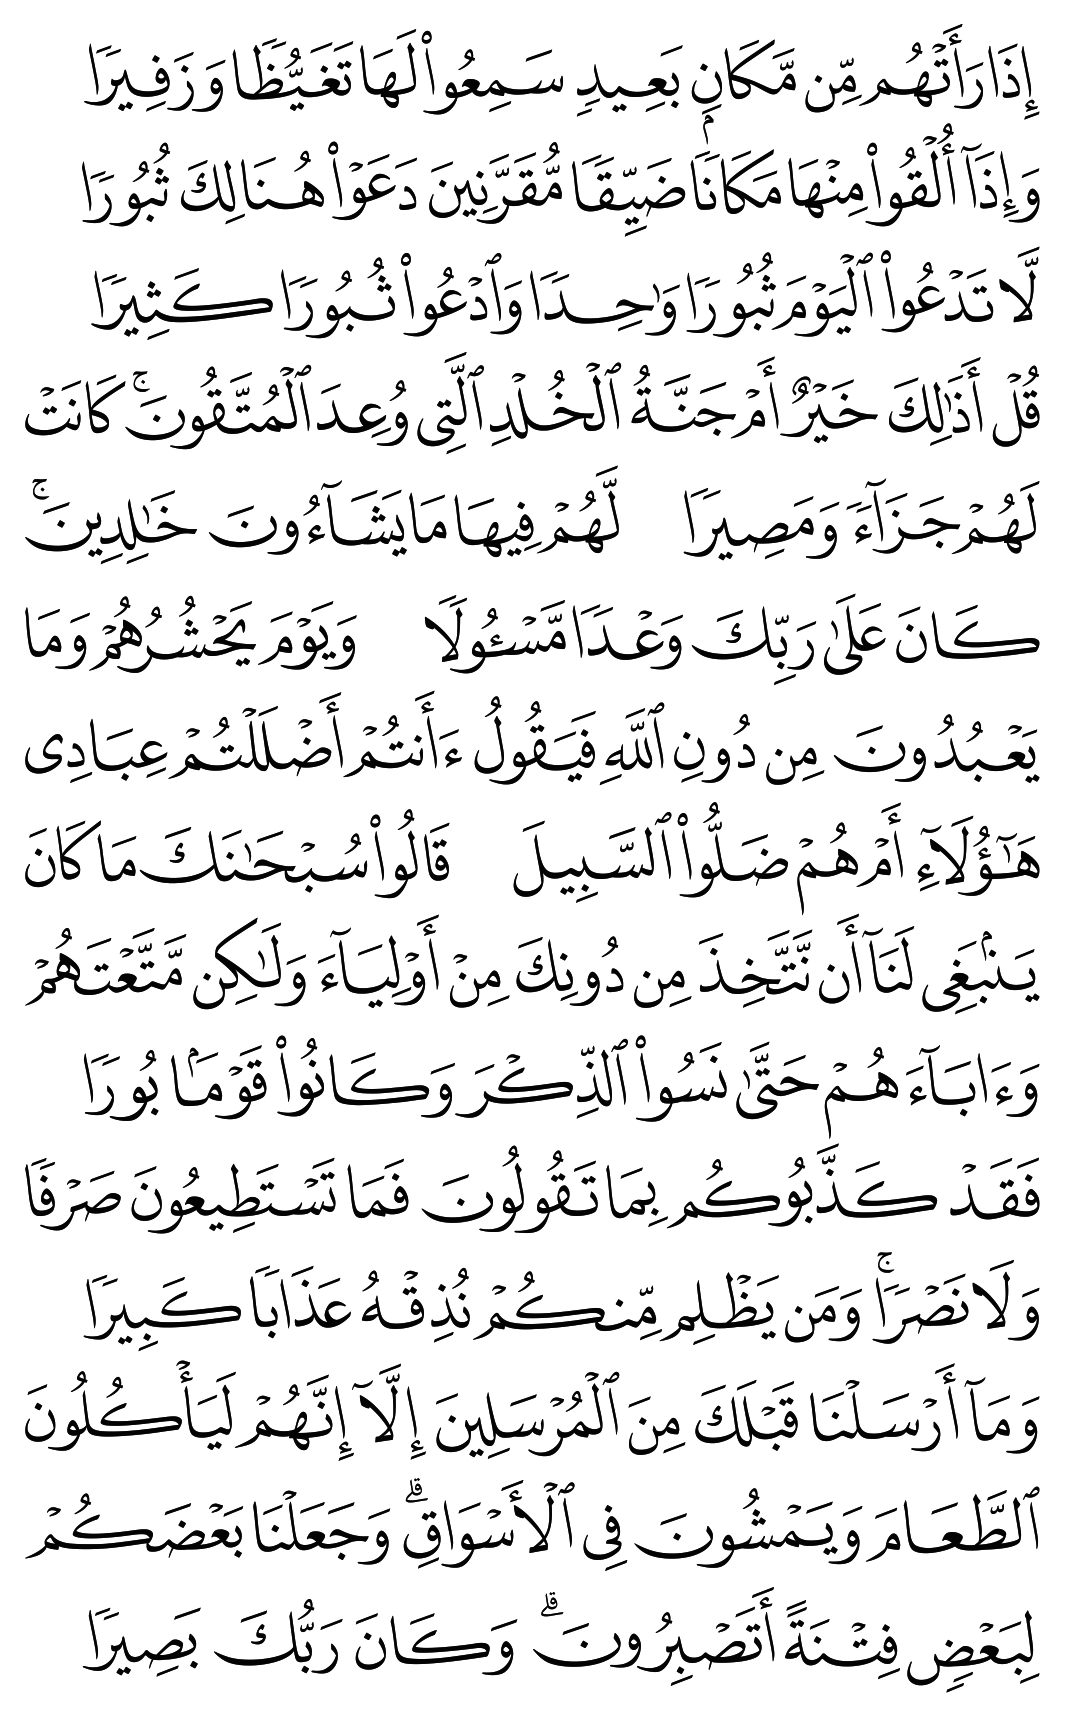 إِذَا رَأَتْهُم مِّن مَّكَانٍۭ بَعِيدٍ سَمِعُوا۟ لَهَا تَغَيُّظًا وَزَفِيرًا
وَإِذَآ أُلْقُوا۟ مِنْهَا مَكَانًا ضَيِّقًا مُّقَرَّنِينَ دَعَوْا۟ هُنَالِكَ ثُبُورًا
لَّا تَدْعُوا۟ ٱلْيَوْمَ ثُبُورًا وَٰحِدًا وَٱدْعُوا۟ ثُبُورًا كَثِيرًا
قُلْ أَذَٰلِكَ خَيْرٌ أَمْ جَنَّةُ ٱلْخُلْدِ ٱلَّتِى وُعِدَ ٱلْمُتَّقُونَ ۚ كَانَتْ
لَهُمْ جَزَآءً وَمَصِيرًا لَّهُمْ فِيهَا مَا يَشَآءُونَ خَٰلِدِينَ ۚ
كَانَ عَلَىٰ رَبِّكَ وَعْدًا مَّسْـُٔولًا وَيَوْمَ يَحْشُرُهُمْ وَمَا
يَعْبُدُونَ مِن دُونِ ٱللَّهِ فَيَقُولُ ءَأَنتُمْ أَضْلَلْتُمْ عِبَادِى
هَٰٓؤُلَآءِ أَمْ هُمْ ضَلُّوا۟ ٱلسَّبِيلَ قَالُوا۟ سُبْحَٰنَكَ مَا كَانَ
يَنۢبَغِى لَنَآ أَن نَّتَّخِذَ مِن دُونِكَ مِنْ أَوْلِيَآءَ وَلَٰكِن مَّتَّعْتَهُمْ
وَءَابَآءَهُمْ حَتَّىٰ نَسُوا۟ ٱلذِّكْرَ وَكَانُوا۟ قَوْمًۢا بُورًا
فَقَدْ كَذَّبُوكُم بِمَا تَقُولُونَ فَمَا تَسْتَطِيعُونَ صَرْفًا
وَلَا نَصْرًا ۚ وَمَن يَظْلِم مِّنكُمْ نُذِقْهُ عَذَابًا كَبِيرًا
وَمَآ أَرْسَلْنَا قَبْلَكَ مِنَ ٱلْمُرْسَلِينَ إِلَّآ إِنَّهُمْ لَيَأْكُلُونَ
ٱلطَّعَامَ وَيَمْشُونَ فِى ٱلْأَسْوَاقِ ۗ وَجَعَلْنَا بَعْضَكُمْ
لِبَعْضٍ فِتْنَةً أَتَصْبِرُونَ ۗ وَكَانَ رَبُّكَ بَصِيرًا